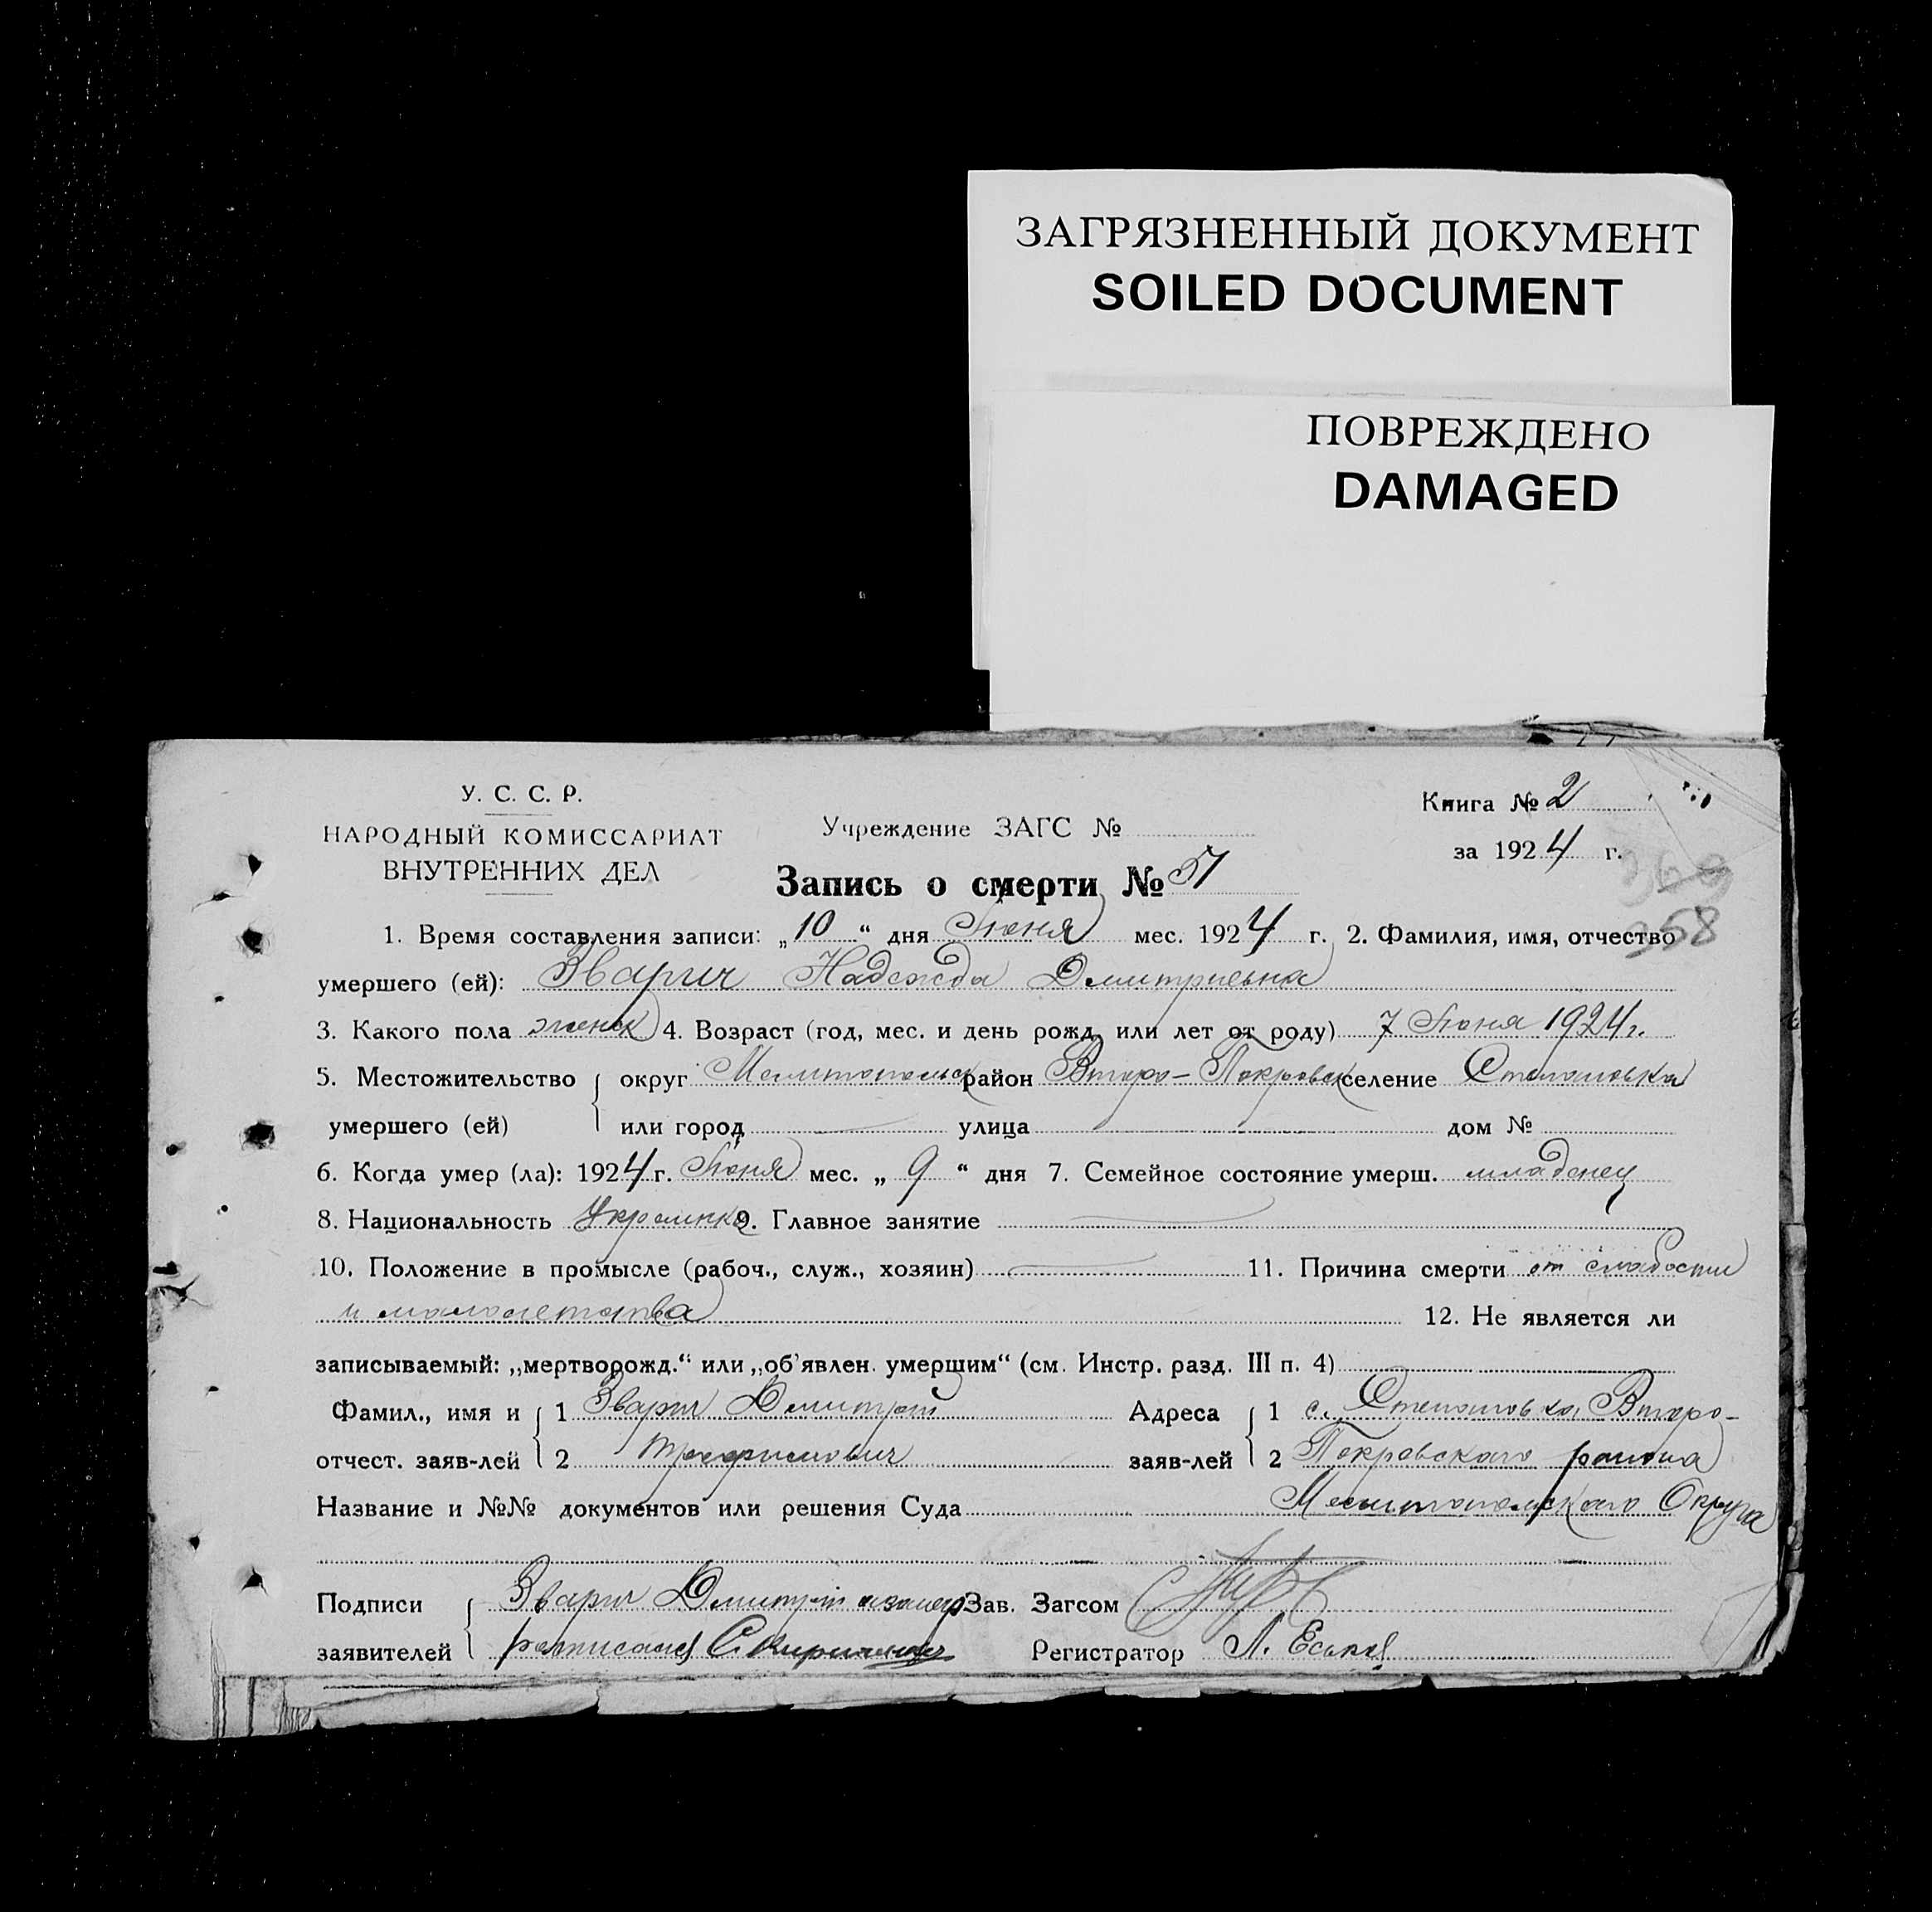 ЗАГРЯЗНЕННЫЙ ДОКУМЕНТ
SOILED DOCUMENT
ПОВРЕЖДЕНО
DAMAGED
У. С. С. Р.
НАРОДНЫЙ КОМИССАРИАТ
ВНУТРЕННИХ ДЕЛ
Учреждение ЗАГС №
Книга № 2
за 1924 г.
369
358
Запись о смерти № 51
1. Время составления записи: „10“ дня Июня мес. 1924 г. 2. Фамилия, имя, отчество
умершего (ей): Зварич Надежда Дмитриевна
3. Какого пола женск 4. Возраст (год, мес. и день рожд. или лет от роду) 7 Июня 1924 г.
5. Местожительство округ Мелитопольск район Второ-Покровск селение Степановка
умершего (ей) или город улица дом №
6. Когда умер (ла): 1924 г. Июня мес. „9“ дня 7. Семейное состояние умерш. младенец
8. Национальность Украинка 9. Главное занятие
10. Положение в промысле (рабоч., служ., хозяин) 11. Причина смерти от слабости
и малолетства 12. Не является ли
записываемый: „мертворожд.“ или „об'явлен. умершим“ (см. Инстр. разд. III п. 4)
Фамил., имя и 1 Зварич Дмитрий Адреса 1 с. Степановка, Второ-
отчест. заяв-лей 2 заяв-лей 2 Покровского района
Название и №№ документов или решения Суда Мелитопольского Округа
Подписи Зварич Дмитрий а за негр Зав. Загсом
заявителей росписался С. Кириченко Регистратор Л. Еськов